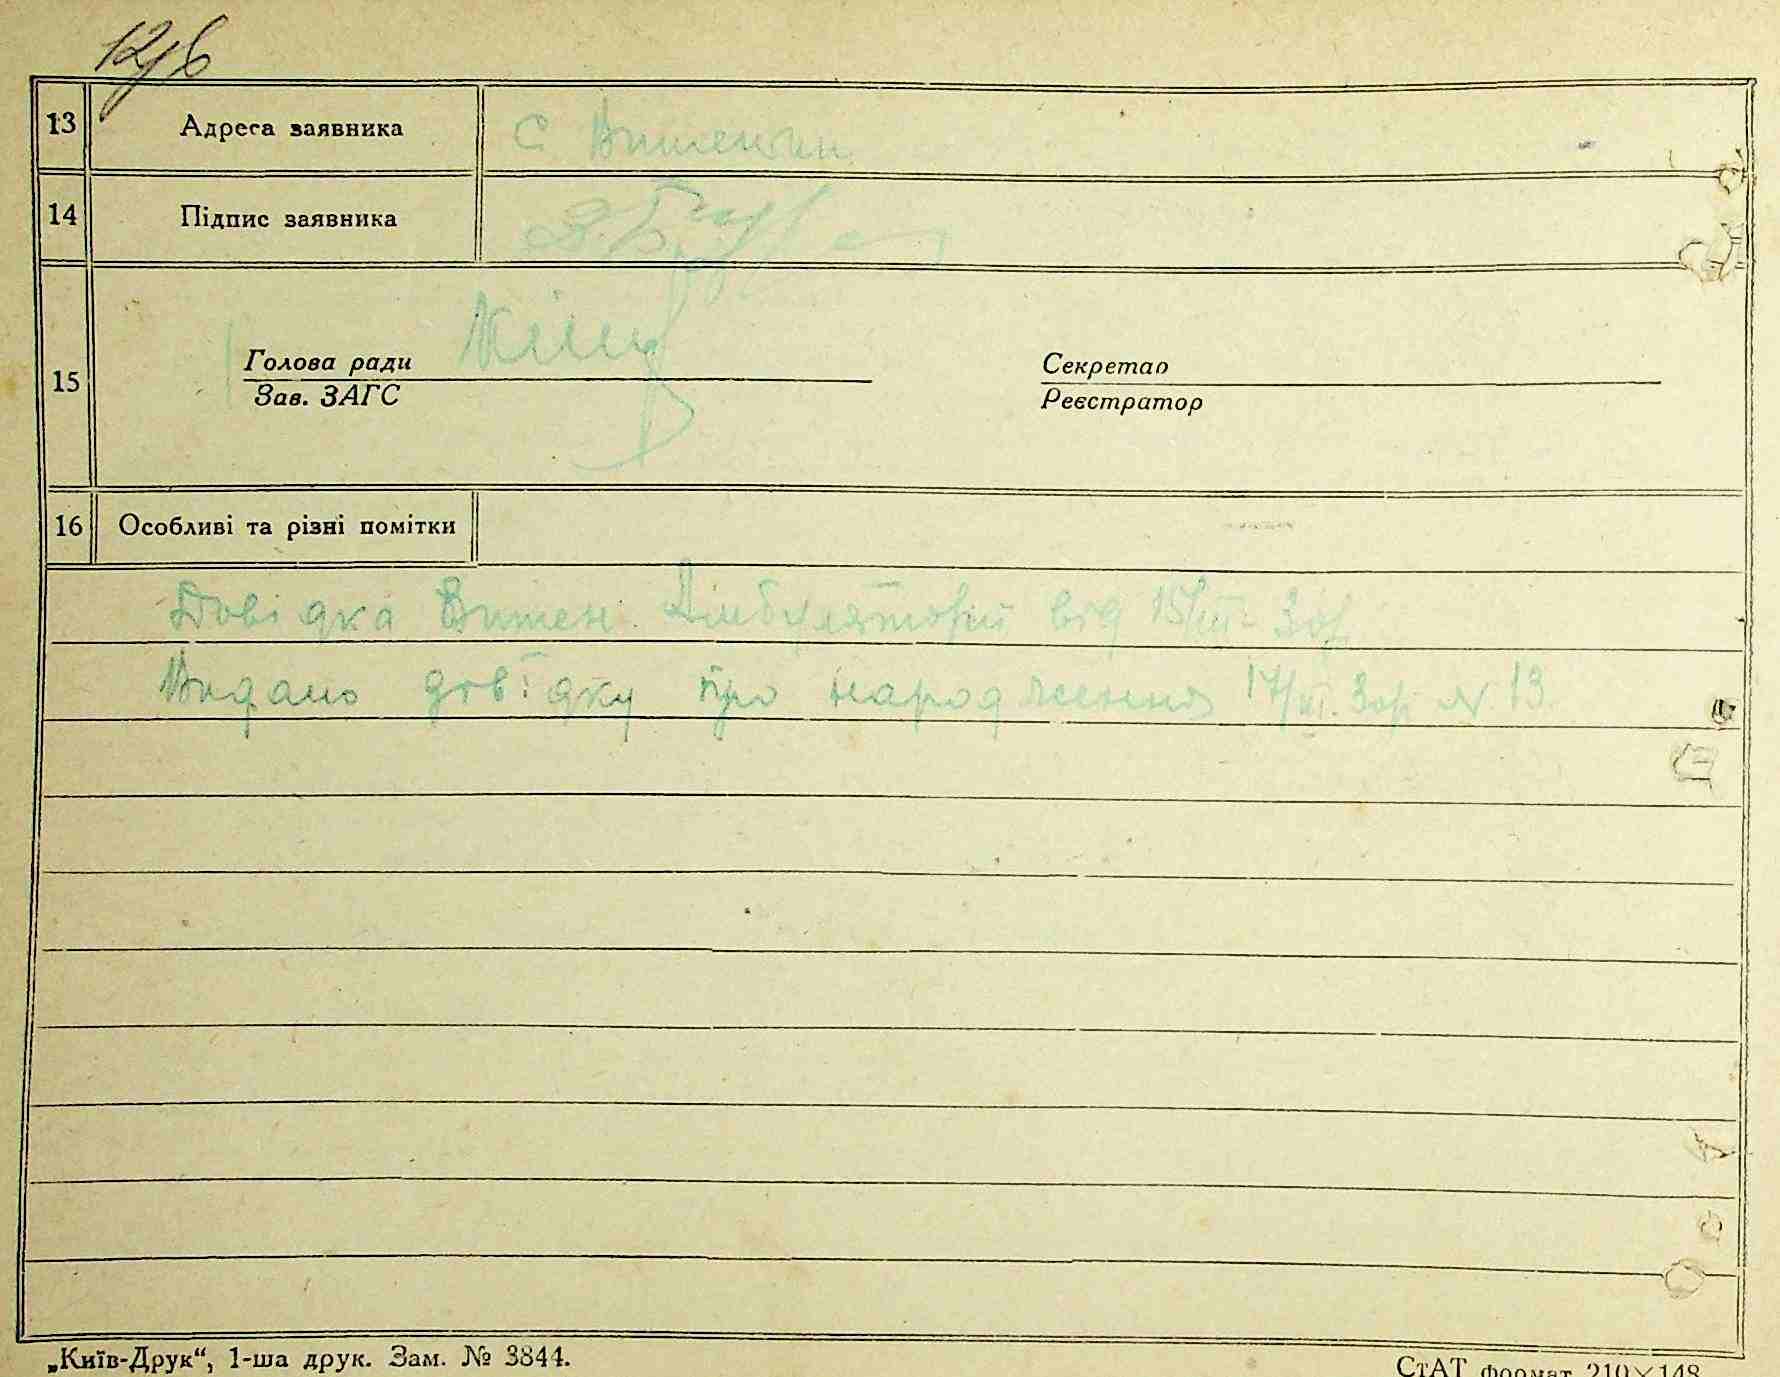 13 Адреса заявника С Вишеньки
14 Підпис заявника
15 Голова ради Секретар
Зав. ЗАГС Реєстратор
16 Особливі та різні помітки
Довідка Вишен. Амбуляторії від 15/III-30р.
Видано довідку про народження 17/III. 30р. №. 13.
„Київ-Друк“, 1-ша друк. Зам. № 3844.
СтАТ формат 210×148